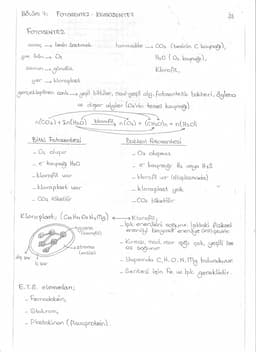 BÖLÜM 7: FOTOSENTEZ - KEMOSENTEZ
FOTOSENTEZ
amaç → besin üretmek
hammadde → CO₂ (besinin C kaynağı),
yan ürün → O₂
H₂O (O₂ kaynağı),
zaman → gündüz
Klorofil,
yer → kloroplast
gerçekleştiren canlı → yeşil bitkiler, mavi-yeşil alg, fotosentetik bakteri, öglena
ve diğer algler (O₂'nin temel kaynağı)
n(CO₂) + 2n(H₂O) klorofil → n(O₂) + (CH₂O)n + n(H₂O)
Bitki Fotosentezi
Bakteri Fotosentezi
- O₂ oluşur
- O₂ oluşmaz
- e⁻ kaynağı H₂O
- e⁻ kaynağı H₂ veya H₂S
- klorofil var
- klorofil var (sitoplazmada)
- kloroplast var
- kloroplast yok
- CO₂ tüketilir
- CO₂ tüketilir
Kloroplast; (C, H, O, N, Mg) ← → Klorofil;
- Işık enerjisini soğurur. Işıktaki fiziksel
enerjiyi kimyasal enerjiye dönüştürür.
- Kırmızı, mavi, mor ışığı çok, yeşili ise
az soğurur
- Yapısında C, H, O, N, Mg bulundurur.
- Sentezi için Fe ve ışık gereklidir.
granum
(klorofil)
stroma
dış zar
iç zar
E.T.S. elemanları;
- Ferrodoksin,
- Sitokrom,
- Plastokinon (flavoprotein)